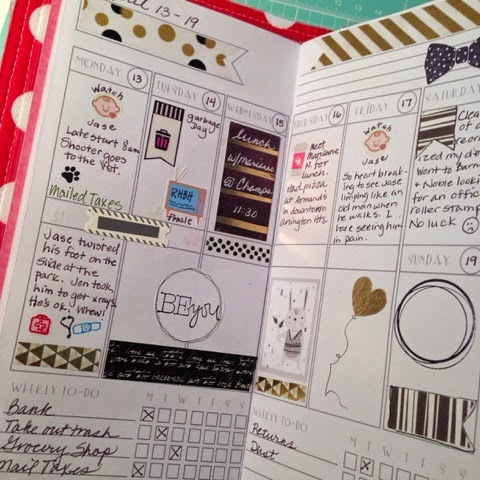 il 13-19
MONDAY 13
Watch
Jase
Late start 9am
Shooter goes
to the Vet.
Mailed Taxes
Jase twisted
his foot on the
slide at the
park. Jon took
him to get xrays.
He's ok. Whew!
TUESDAY 14
garbage
Day!
RHBH
BEyou
WEDNESDAY 15
lunch
w/marianne
@ Champs
11:30
THURSDAY 16
Meet
Marianne
N. for
lunch.
Had pizza
at Armands
in downtown
Arlington Hts.
FRIDAY 17
Watch
Jase
So heart break-
ing to see Jase
limping like an
old man when
he walks. I
hate seeing him
in pain.
SATURDA
Clea
of a
reor
ized my d
Went to Barn
+ Noble look
for an offic
roller stamp
No luck
SUNDAY 19
WEEKLY TO-DO M T W T F S S
Bank
Take out trash
Grocery Shop
Mail Taxes
WEEKLY TO-DO M T W T F S
Returns
Dust